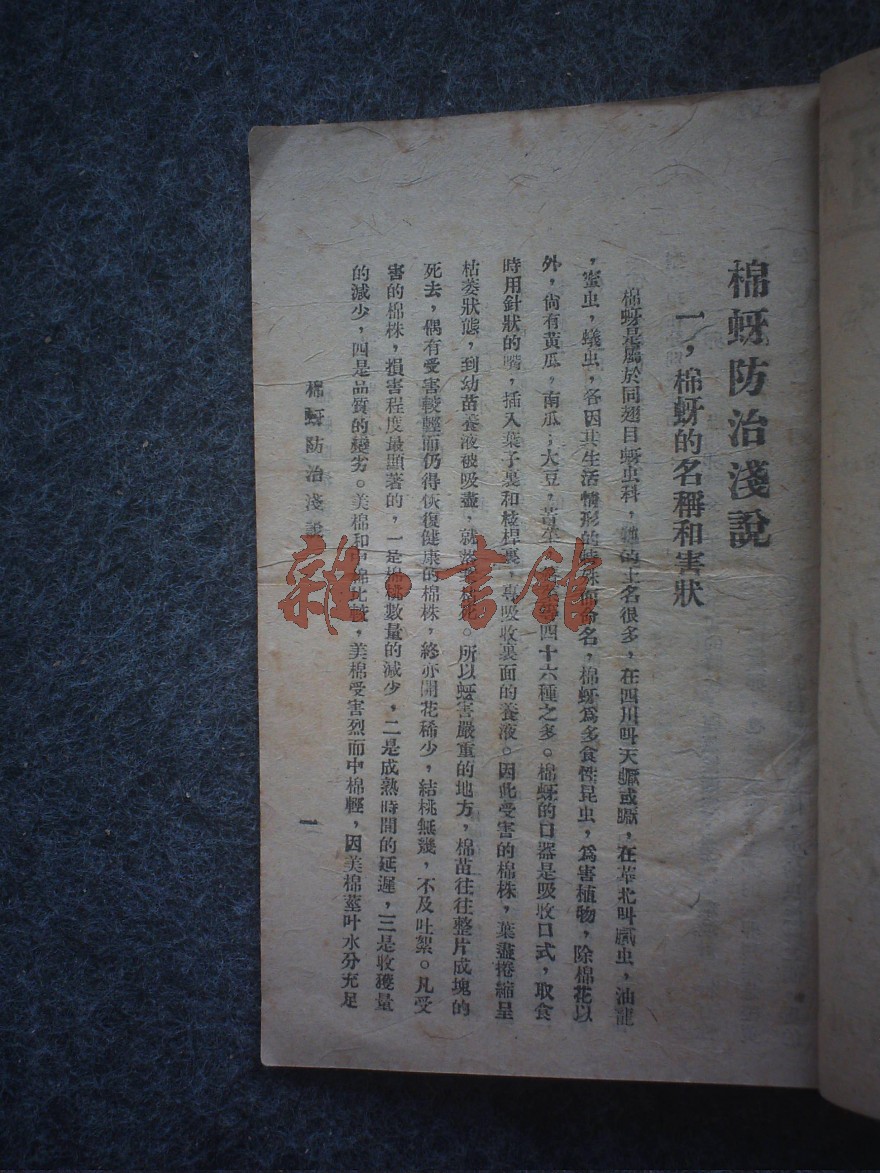 棉蚜防治淺說
一，棉蚜的名稱和害狀
棉蚜是屬於同翅目蚜虫科，牠的土名很多，在四川叫天蟨或蟨，在華北叫膩虫，油龍
，蜜虫，蟻虫，各因其生活情形的特殊而命名，棉蚜爲多食性昆虫，爲害植物，除棉花以
外，尙有黃瓜，南瓜；大豆，四十六種之多。棉蚜的口器是吸收口式，取食
時用針狀的嘴，插入葉子裏和枝桿裏，專吸收裏面的養液。因此受害的棉株，葉盡捲縮呈
枯萎狀態，到幼苗養液被吸盡，就。所以蚜害嚴重的地方，棉苗往往整片成塊的
死去，偶有受害較輕而仍得恢復健康的棉株，終亦開花稀少，結桃無幾，不及吐絮。凡受
害的棉株，損害程度最顯著的，一是棉桃數量的減少，二是成熟時間的延遲，三是收獲量
的減少，四是品質的變劣。美棉和中棉比較，美棉受害烈而中棉輕，因美棉莖叶水分充足
棉蚜防治淺說
一
雜·書館